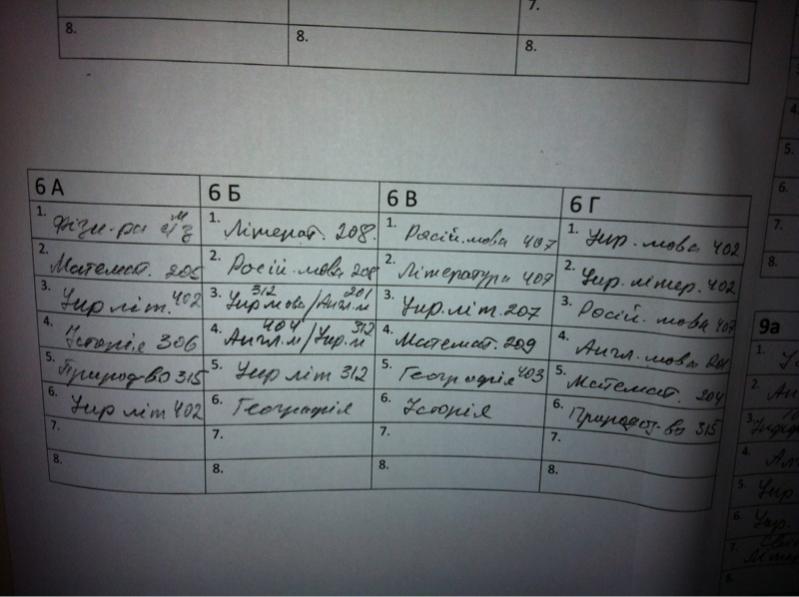 7.
8.
8.
8.
6 А
6 Б
6 В
6 Г
1.
1. Літерат. 208.
1. Росій. мова 407
1. Укр. мова 402
2. Математ. 205
2. Росій. мова 208
2. Література 407
2. Укр. літер. 402
3. Укр літ. 402
3. Укр мова/Англ. м 312 201
3. Укр. літ. 207
3. Росій. мова 407
4. Історія 306
4. Англ. м/Укр. м 404 312
4. Математ. 209
4. Англ. мова 201
5. Природ-во 315
5. Укр літ 312
5. Географія 403
5. Математ. 204
6. Укр літ 402
6. Географія
6. Історія
6. Природ-во 315
7.
7.
7.
7.
8.
8.
8.
8.
4.
5.
6.
7.
8.
9а
1.
2.
3.
4.
5. Укр
6. Укр.
7.
8.